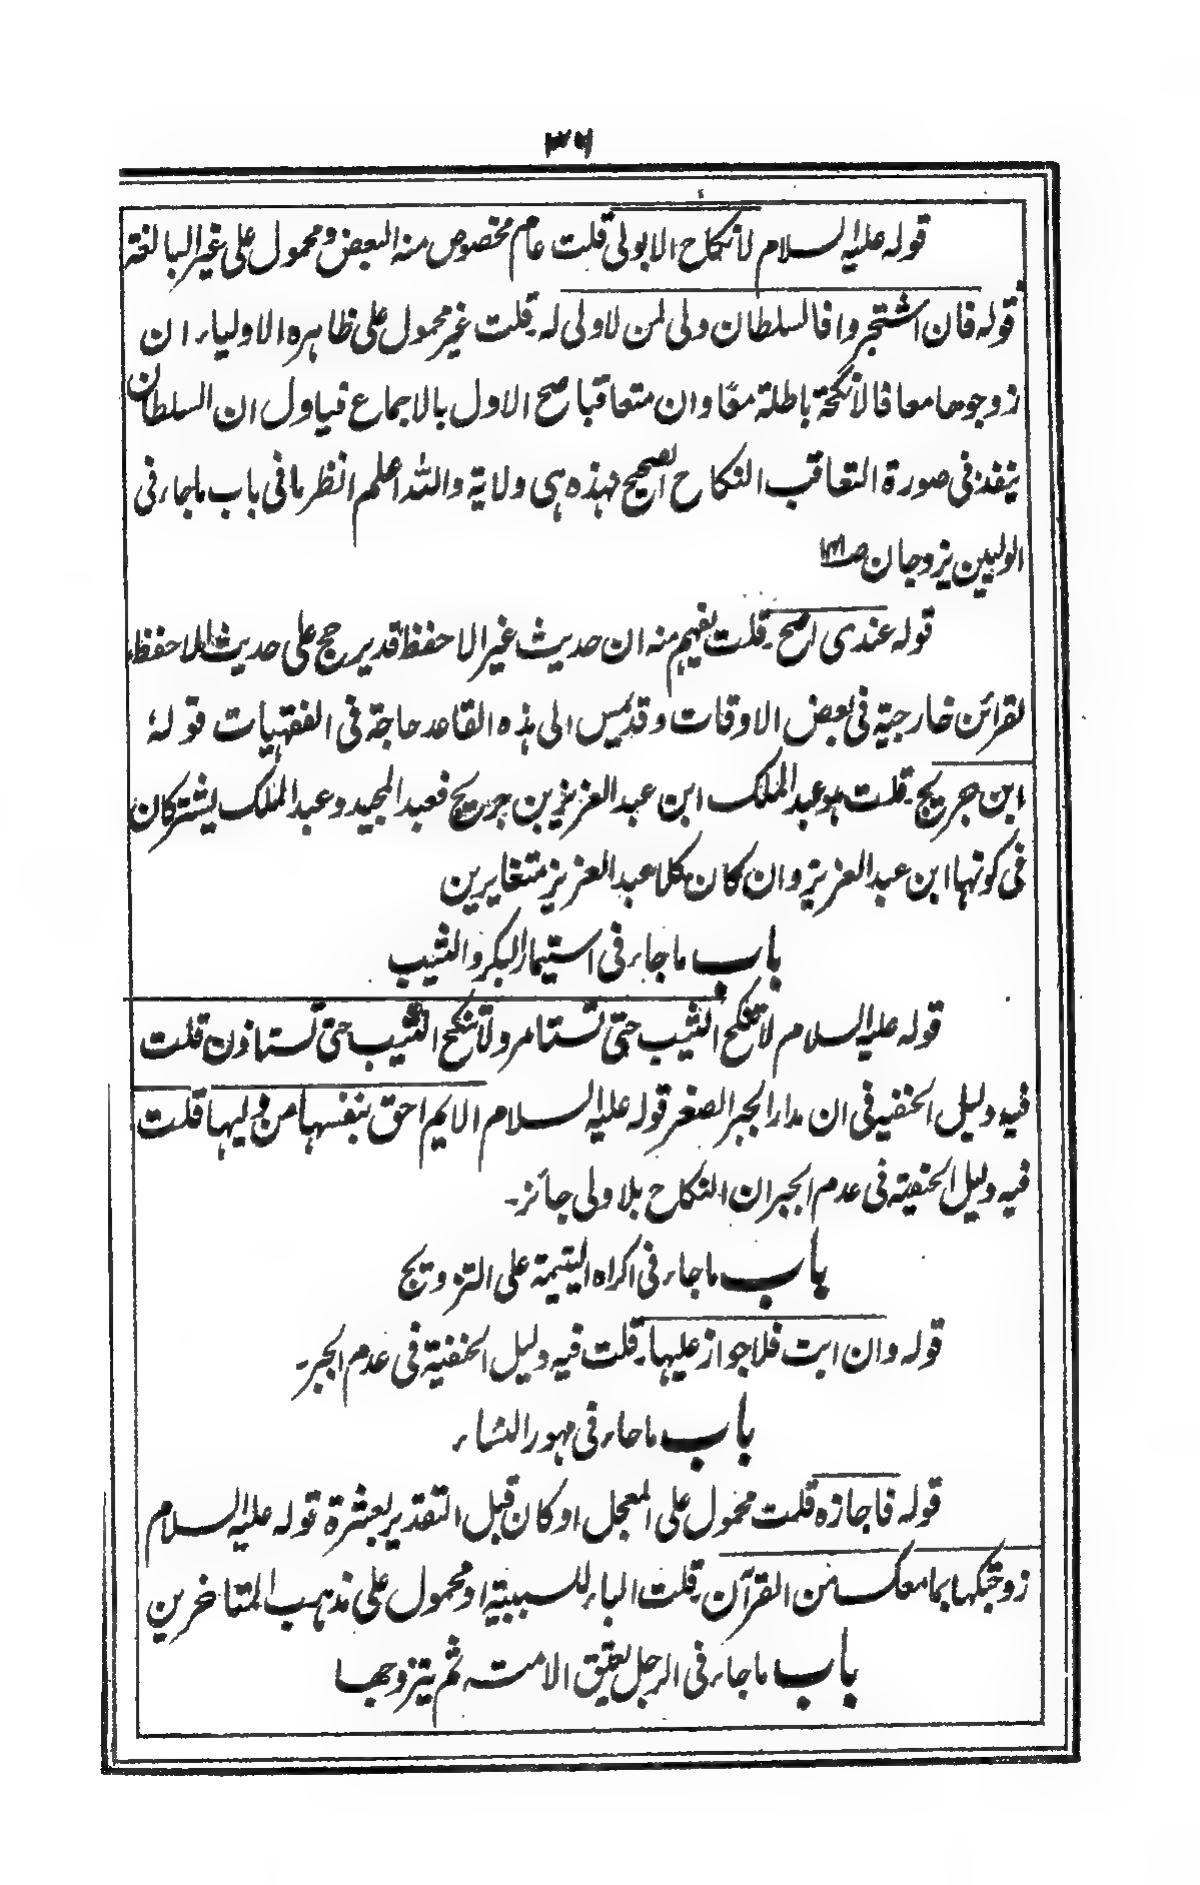 ٣٦
قوله عليه السلام لا نكاح الا بولى قلت عام مخصوص منه البعض ومحمول على غير البالغة
قوله فان اشتجروا فالسلطان ولى لمن لا ولى له۔ قلت غير محمول على ظاهره الاولياء ان
زوجوها معا فالانكحة باطلة معًا وان متعاقبا صح الاول بالاجماع فياول ان السلطان
ينفذ فى صورة التعاقب النكاح الصحيح فهذه هى ولاية والله اعلم انظر ما فى باب ماجاء فى
الوليين يزوجان صـ
قوله عندى اصح۔ قلت يفهم منه ان حديث غير الاحفظ قد يرجح على حديث الاحفظ
لقرائن خارجية فى بعض الاوقات وقد يمس الى هذه القاعد حاجة فى الفقهيات قوله
ابن جريج۔ قلت هو عبد الملك ابن عبد العزيز بن جريج فعبد المجيد وعبد الملك يشتركان
فى كونهما ابن عبد العزيز وان كان كلا عبد العزيز متغايرين
باب ماجاء فى استيمار البكر والثيب
قوله عليه السلام لا تنكح الثيب حتى تستامر ولا تنكح الثيب حتى تستاذن قلت
فيه دليل الحنفيه فى ان مدار الجبر الصغر قوله عليه السلام الايم احق بنفسها من وليها قلت
فيه دليل الحنفية فى عدم الجبر ان النكاح بلا ولى جائز۔
باب ماجاء فى اكراه اليتيمة على التزويج
قوله وان ابت فلا جواز عليها۔ قلت فيه دليل الحنفية فى عدم الجبر۔
باب ماجاء فى مهور النساء
قوله فاجازه قلت محمول على المعجل او كان قبل التقدير بعشرة قوله عليه السلام
زوجتكها بما معك من القرآن۔ قلت الباء للسببية او محمول على مذهب المتاخرين
باب ماجاء فى الرجل يعتق الامة ثم يتزوجها